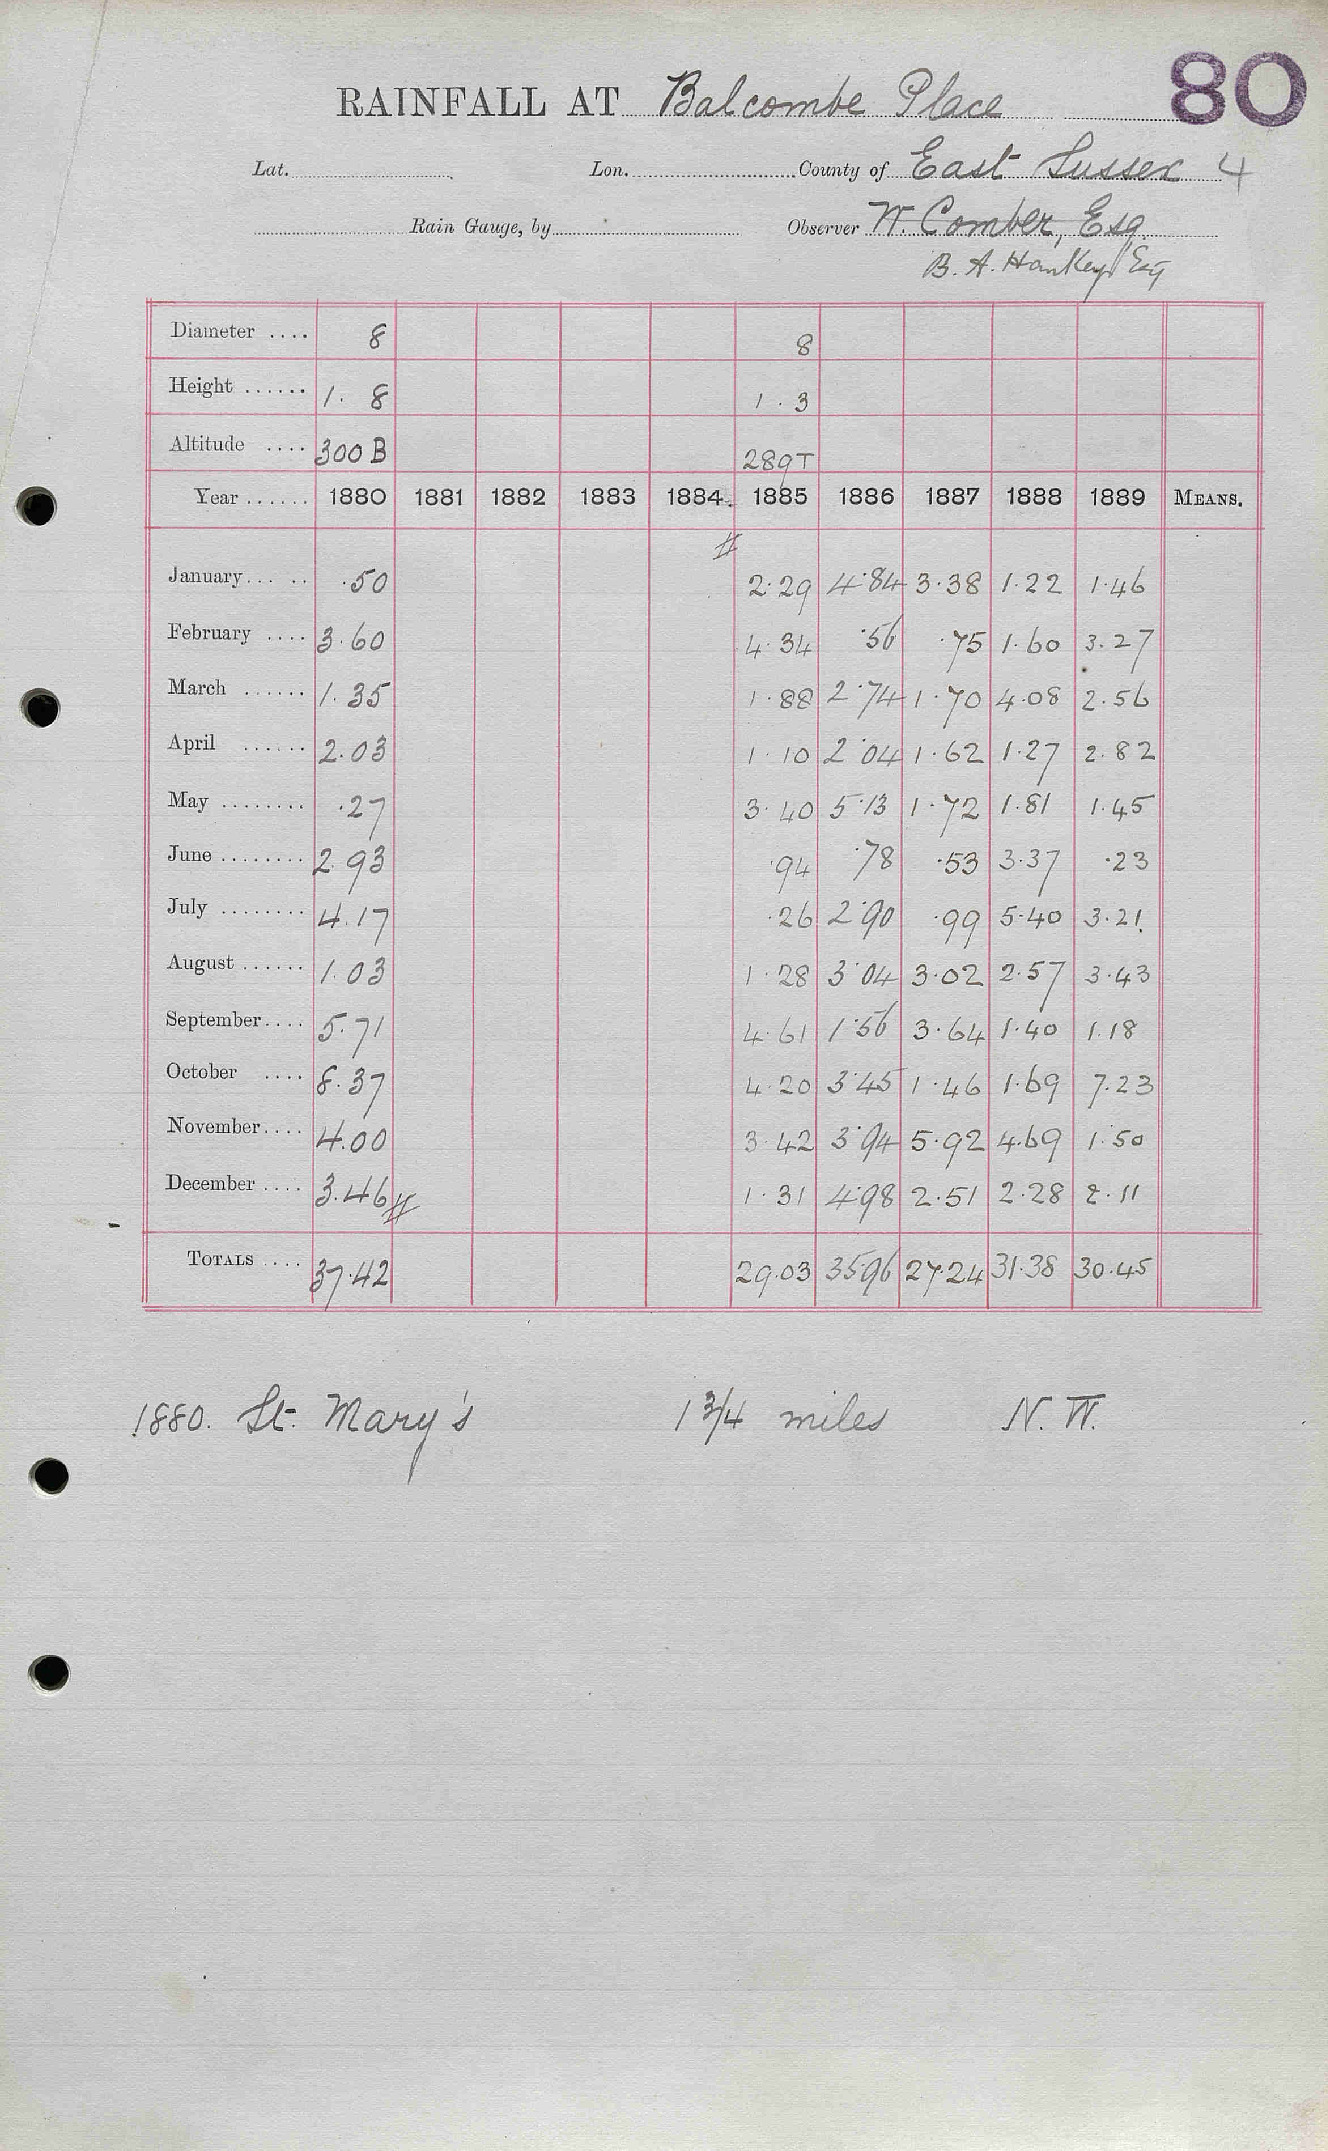 80
RAINFALL AT Balcombe Place
Lat. Lon. County of East Sussex 4
Rain Gauge, by Observer W. Comber, Esq.
B. A. Hankey Esq
Diameter .... 8 8
Height ...... 1. 8 1.3
Altitude .... 300 B 289 T
Year ...... 1880 1881 1882 1883 1884. 1885 1886 1887 1888 1889 MEANS.
#
January... .. .50 2.29 4.84 3.38 1.22 1.46
February .... 3.60 4.34 .56 .75 1.60 3.27
March ...... 1.35 1.88 2.74 1.70 4.08 2.56
April ...... 2.03 1.10 2.04 1.62 1.27 2.82
May ........ .27 3.40 5.13 1.72 1.81 1.45
June ........ 2.93 .94 .78 .53 3.37 .23
July ........ 4.17 .26 2.90 .99 5.40 3.21.
August ...... 1.03 1.28 3.04 3.02 2.57 3.43
September.... 5.71 4.61 1.56 3.64 1.40 1.18
October .... 8.37 4.20 3.45 1.46 1.69 7.23
November.... 4.00 3.42 3.94 5.92 4.69 1.50
December .... 3.46 # 1.31 4.98 2.51 2.28 2.11
TOTALS .... 37.42 29.03 35.96 27.24 31.38 30.45
1880. St. Mary's 1 3/4 miles N. W.